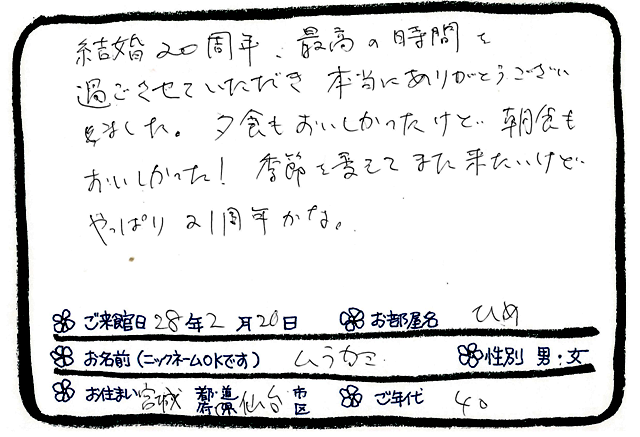 結婚20周年、最高の時間を
過ごさせていただき本当にありがとうござい
ました。夕食もおいしかったけど朝食も
おいしかった!季節を変えてまた来たいけど
やっぱり21周年かな。
ご来館日28年2月20日 お部屋名 ひめ
お名前(ニックネームOKです) 性別 男・女
お住まい宮城 都・道・府・県 仙台 市・区 ご年代 40